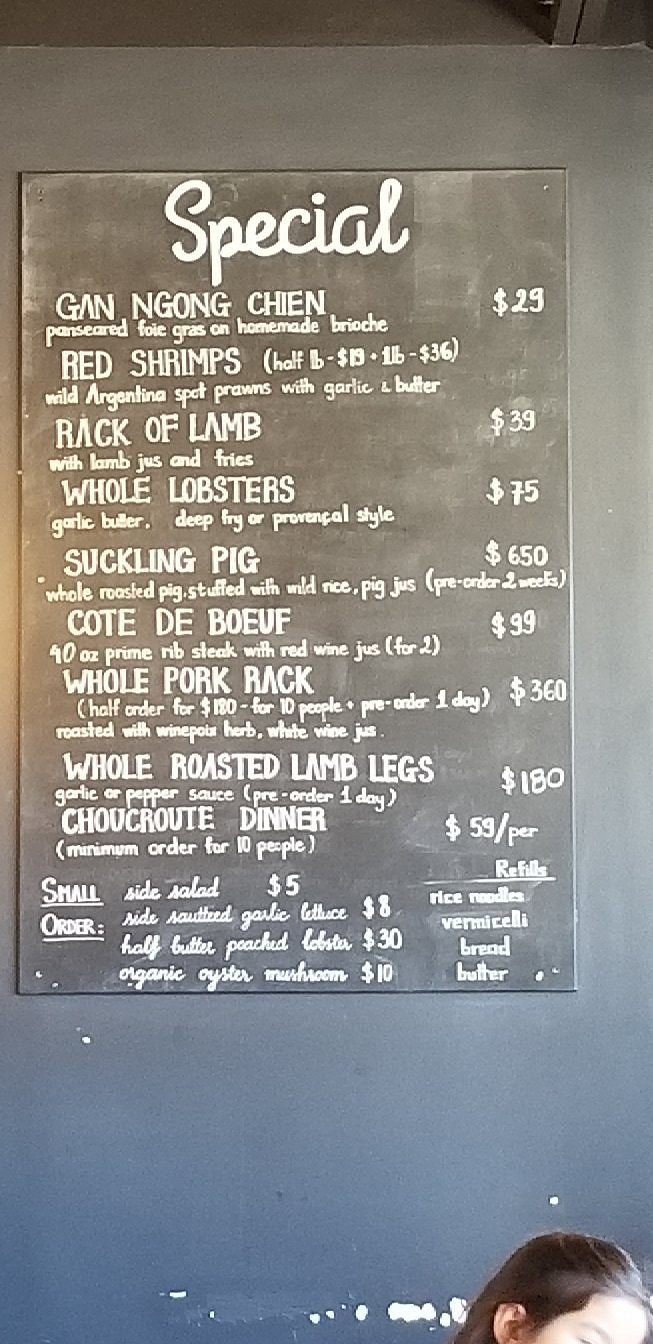 Special
GAN NGONG CHIEN $29
panseared foie gras on homemade brioche
RED SHRIMPS (half lb - $19 • 1lb - $36)
wild Argentina spot prawns with garlic & butter
RACK OF LAMB $39
with lamb jus and fries
WHOLE LOBSTERS $75
garlic butter, deep fry or provençal style
SUCKLING PIG $650
whole roasted pig, stuffed with wild rice, pig jus (pre-order 2 weeks)
COTE DE BOEUF $99
40 oz prime rib steak with red wine jus (for 2)
WHOLE PORK RACK $360
(half order for $180 - for 10 people • pre-order 1 day)
roasted with winepoix herb, white wine jus.
WHOLE ROASTED LAMB LEGS $180
garlic or pepper sauce (pre-order 1 day)
CHOUCROUTE DINNER $59/per
(minimum order for 10 people)
SMALL ORDER:
side salad $5
side sautteed garlic lettuce $8
half butter poached lobster $30
organic oyster mushroom $10
Refills
rice noodles
vermicelli
bread
butter